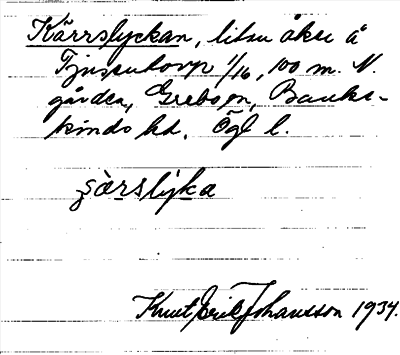 Kärrslyckan, liten åker å
Tjusentorp 1/16, 100 m. N.
gården, Grebo sn, Banke-
kinds hd. Ögl l.
sàrslyka
Knut Erik Johansson 1934.